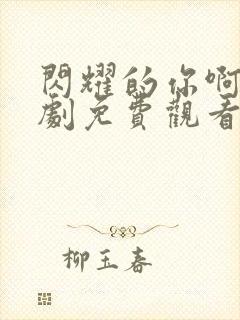 閃耀的你啊
劇免費觀看
柳玉春